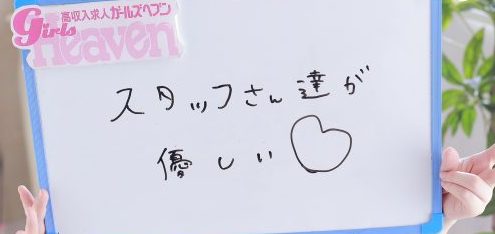 高収入求人ガールズヘブン
Girls
Heaven
スタッフさん達が
優しい♡